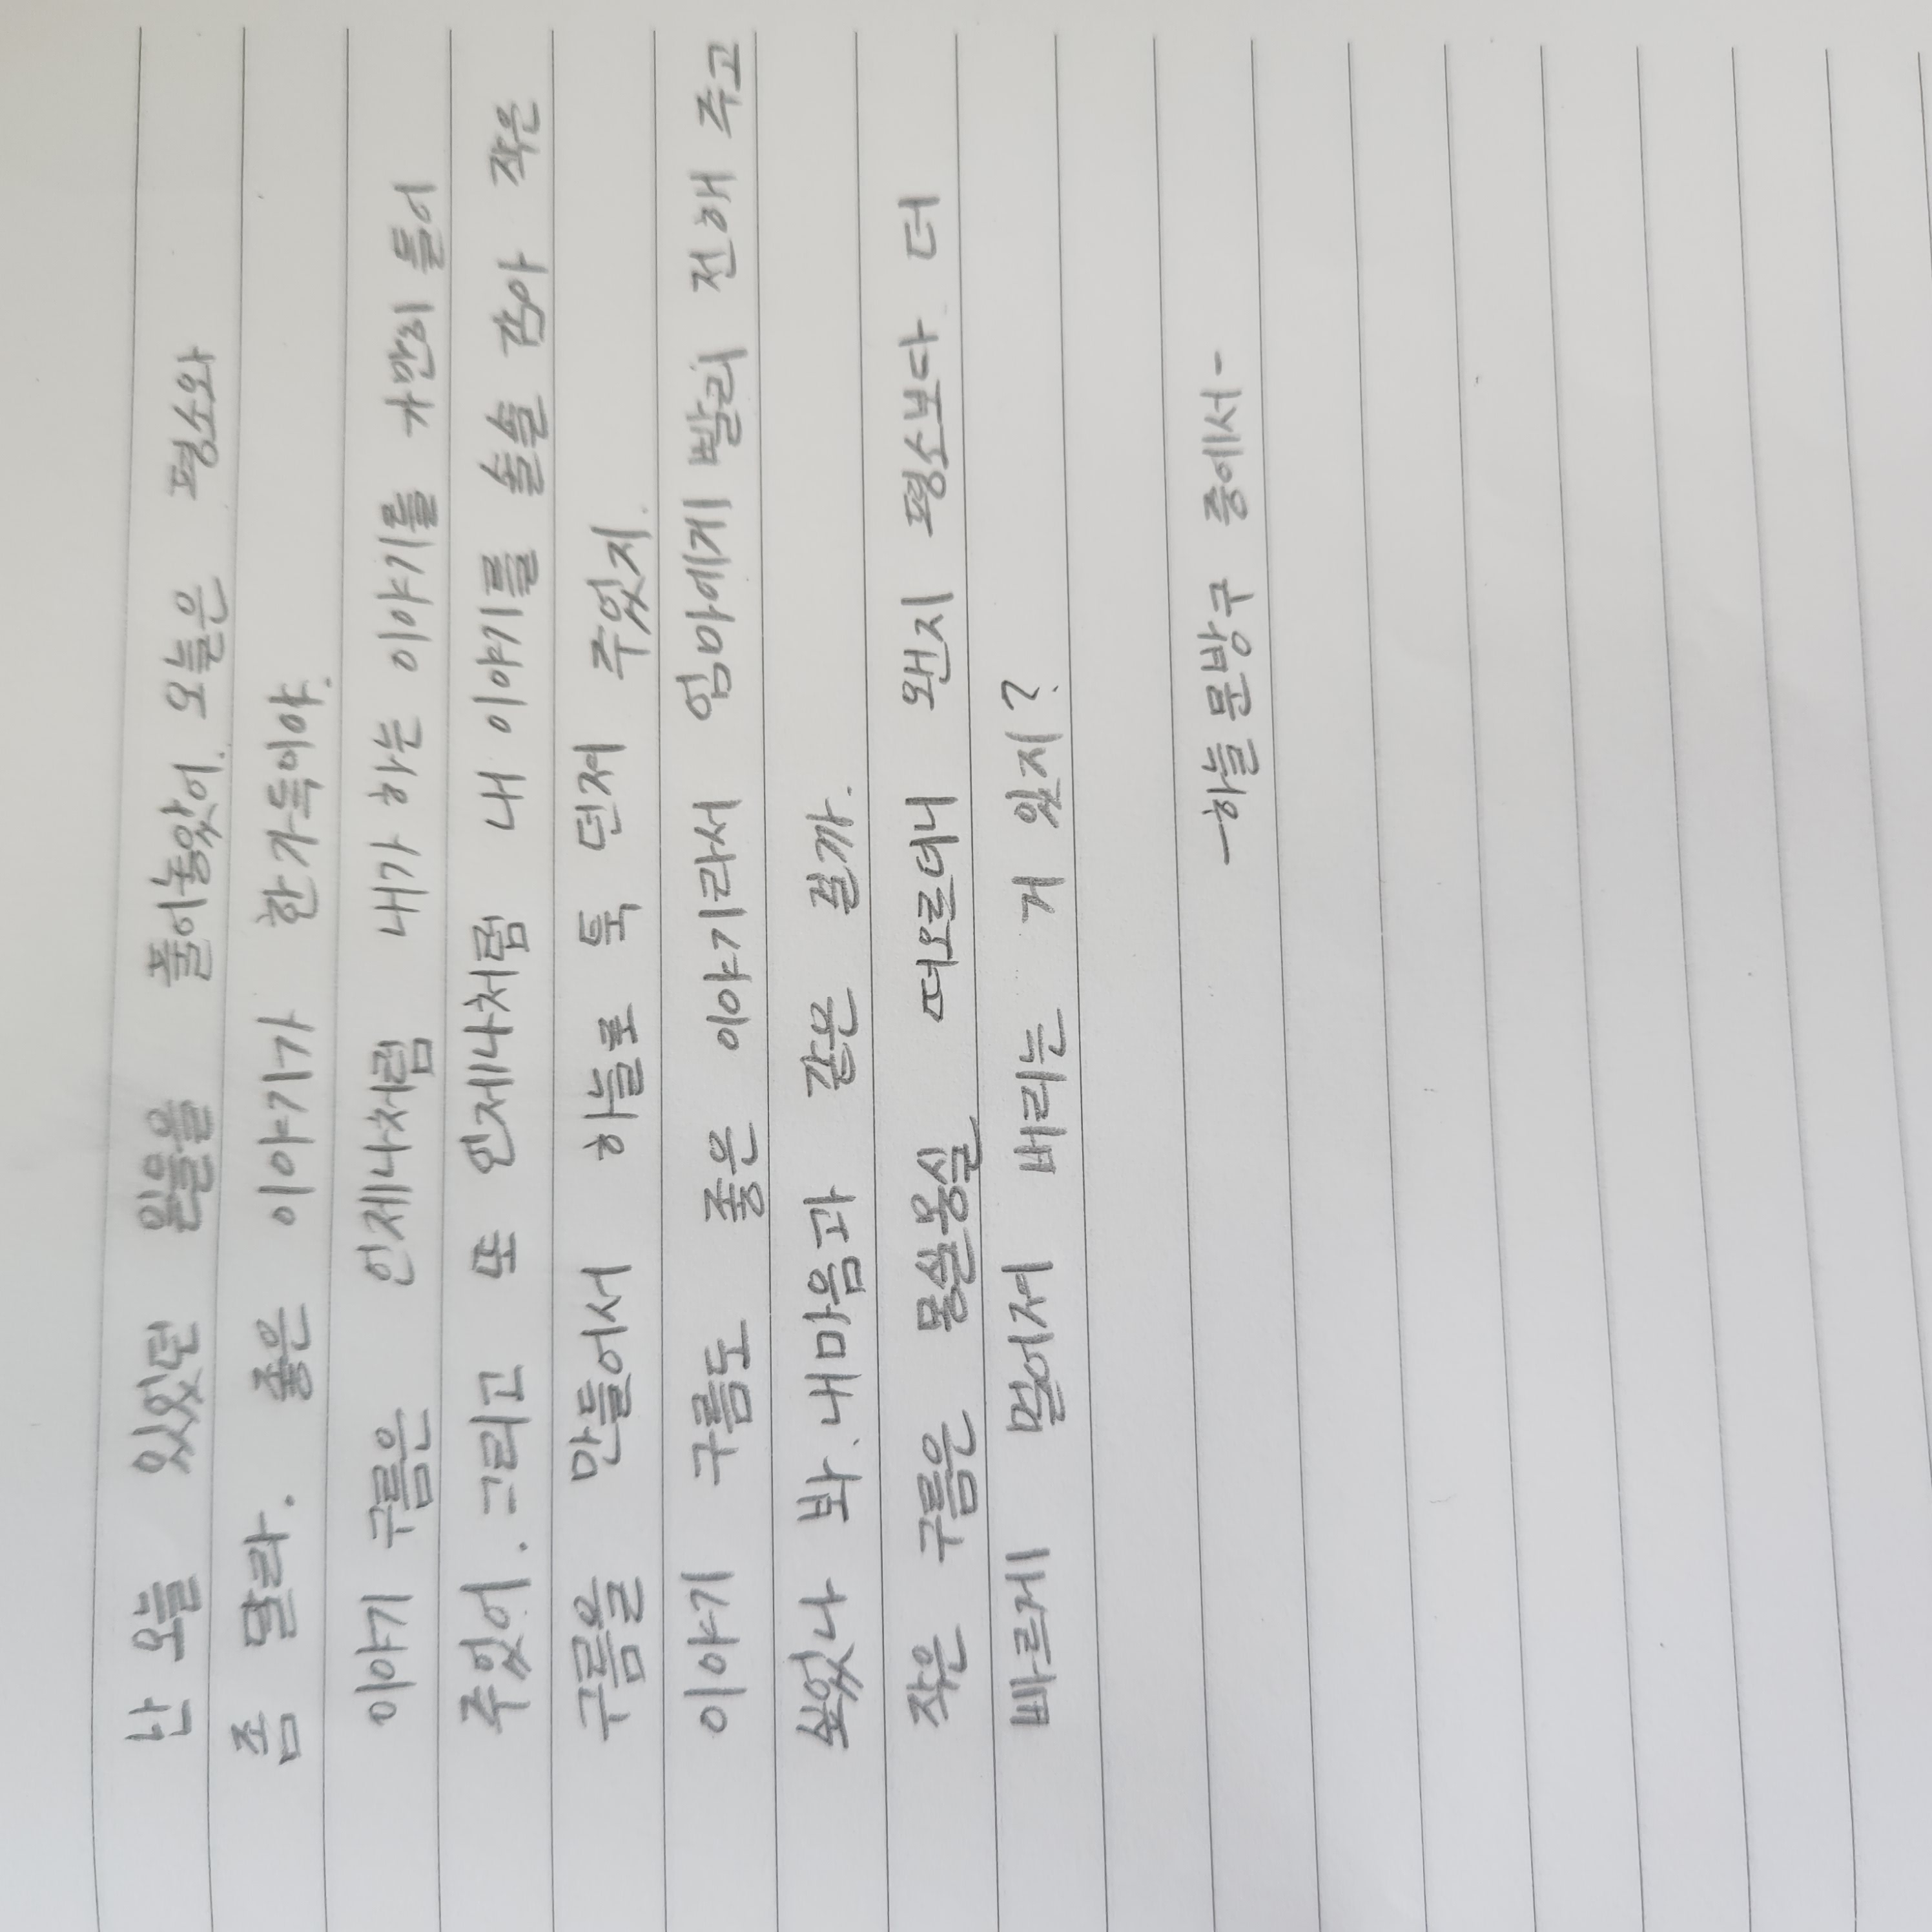 난 오늘 있었던 일들을 풀어놓았어. 오늘은 평소와
좀 달라. 좋은 이야기가 한가득이야.
이야기 구름은 언제나처럼 내가 하는 이야기를 가만히 들어
주었어. 그리고 또 언제나처럼 내 이야기를 솔솔 감아 작은
구름을 만들어서 하늘로 툭 던져 주었지.
이야기 구름도 좋은 이야기라서 엄마에게 빨리 전해 주고
싶었나 봐. 내 마음과 같은 걸까.
작은 구름은 몽실몽실 떠오르더니 왠지 평소보다 더
빠르게 멀어져 버리는 거 있지?
-하늘 문방구 중에서-